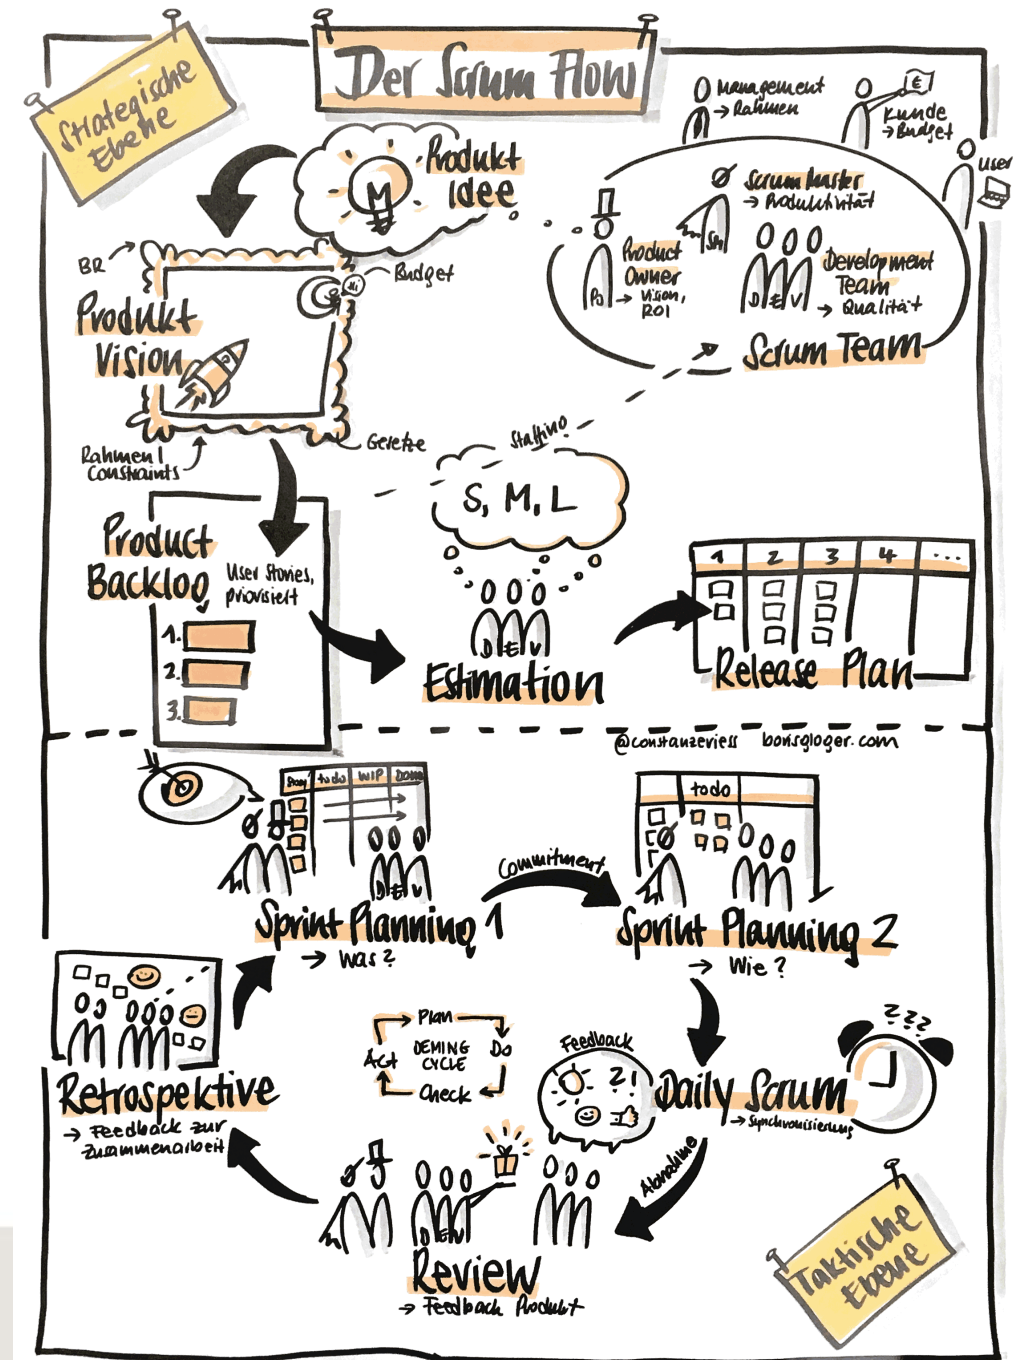 Der Scrum Flow
Strategische
Ebene
Produkt
Idee
M
Management
→ Rahmen
€
Kunde
→ Budget
User
Scrum Master
→ Produktivität
SM
Product
Owner
→ Vision,
ROI
PO
Development
Team
→ Qualität
D E V
Scrum Team
BR
Budget
Produkt
Vision
Gesetze
Rahmen /
Constraints
Staffing
S, M, L
Product
Backlog
User Stories,
priorisiert
1.
2.
3.
D E V
Estimation
1 2 3 4 ...
Release Plan
@constanzeriess borisgloger.com
Story todo WIP Done
D E V
Sprint Planning 1
→ Was?
Commitment
todo
Sprint Planning 2
→ Wie?
Plan
Do
Check
Act
DEMING
CYCLE
Feedback
?!
???
Daily Scrum
→ Synchronisierung
Retrospektive
→ Feedback zur
Zusammenarbeit
Abnahme
D E V
Review
→ Feedback Produkt
Taktische
Ebene